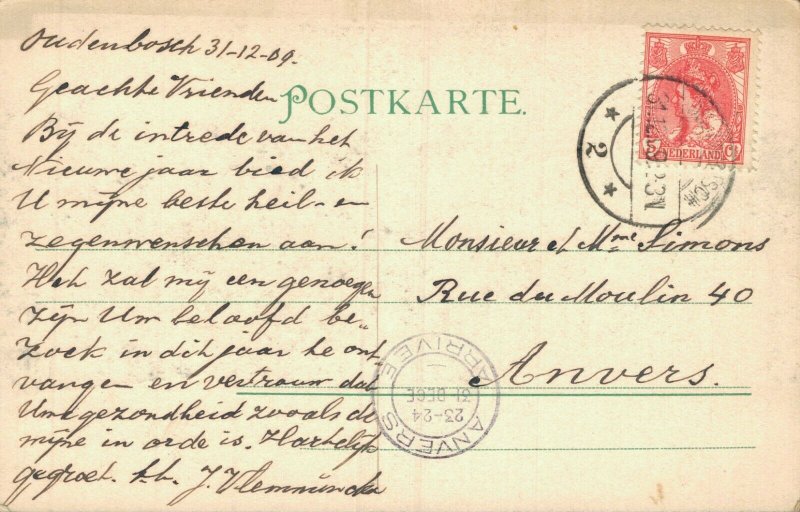 Oudenbosch 31-12-09.
Geachte Vrienden
Bij de intrede van het
Nieuwe jaar bied ik
U mijne beste heil- en
zegenwenschen aan!
Het zal mij een genoegen
zijn Uw beloofd be-
zoek in dit jaar te ont-
vangen en vertrouw dat
Uwe gezondheid zooals de
mijne in orde is. Hartelijk
gegroet. t.t. J. Vlemminckx
POSTKARTE.
NEDERLAND
2
Monsieur et Mme Simons
Rue du Moulin 40
Anvers.
ANVERS
ARRIVEE
31 DECE
23-24